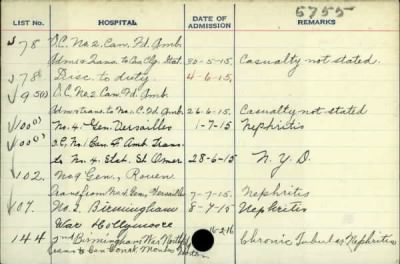 5755
LIST No. HOSPITAL DATE OF ADMISSION REMARKS
√78 O.C. No. 2. Can. Fd. Amb.
Adm & Trans. to Cas Clg. Stat. 30-5-15. Casualty not stated.
√78 Disc. to duty. 4-6-15.
√95(1) O.C. No 2. Can. Fd. Amb.
Adm & trans. to No. C. Fd Amb. 26-6-15. Casualty not stated
√100(1) No. 4. Gen. Versailles 1-7-15. Nephritis
√100(1) O.C. No. 1 Can. Fd Amb Trans
to No. 4. Stat. St Omer 28-6-15 N. Y. D.
√102. No 9 Gen., Rouen
Trans from No 4 Gen, Versailles 7-7-15. Nephritis
√107. No. 2, Birmingham 8-7-15 Nephritis
War Hollymoor
144 2nd Birmingham War Northfield 16-2-16 Chronic Tubular Nephritis
trans to Can Conval. Monks Horton